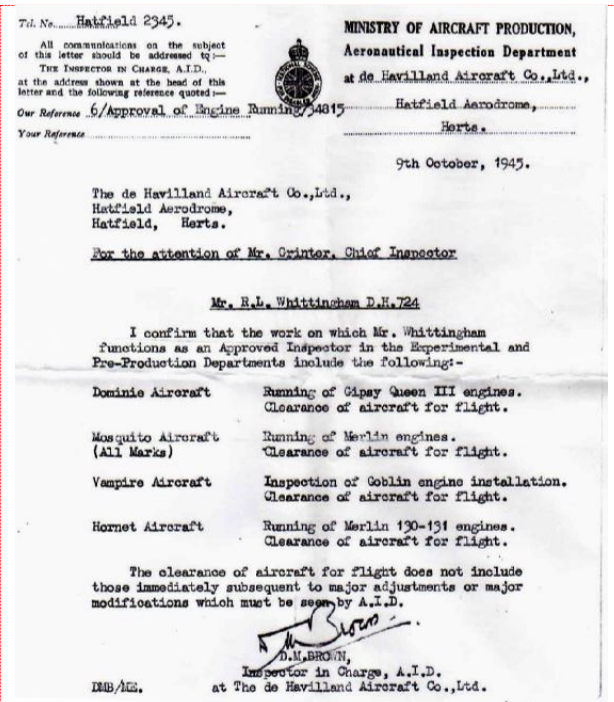 Tel. No. Hatfield 2345.
All communications on the subject
of this letter should be addressed to :—
THE INSPECTOR IN CHARGE, A.I.D.,
at the address shown at the head of this
letter and the following reference quoted :—
Our Reference 6/Approval of Engine Running/34815
Your Reference
MINISTRY OF AIRCRAFT PRODUCTION,
Aeronautical Inspection Department
at de Havilland Aircraft Co.,Ltd.,
Hatfield Aerodrome,
Herts.
9th October, 1945.
The de Havilland Aircraft Co.,Ltd.,
Hatfield Aerodrome,
Hatfield, Herts.
For the attention of Mr. Grinter, Chief Inspector
Mr. R.L. Whittingham D.H.724
I confirm that the work on which Mr. Whittingham
functions as an Approved Inspector in the Experimental and
Pre-Production Departments include the following:-
Dominie Aircraft Running of Gipsy Queen III engines.
Clearance of aircraft for flight.
Mosquito Aircraft Running of Merlin engines.
(All Marks) Clearance of aircraft for flight.
Vampire Aircraft Inspection of Goblin engine installation.
Clearance of aircraft for flight.
Hornet Aircraft Running of Merlin 130-131 engines.
Clearance of aircraft for flight.
The clearance of aircraft for flight does not include
those immediately subsequent to major adjustments or major
modifications which must be seen by A.I.D.
D.M. Brown.
D.M.BROWN,
Inspector in Charge, A.I.D.
DMB/MS. at The de Havilland Aircraft Co.,Ltd.